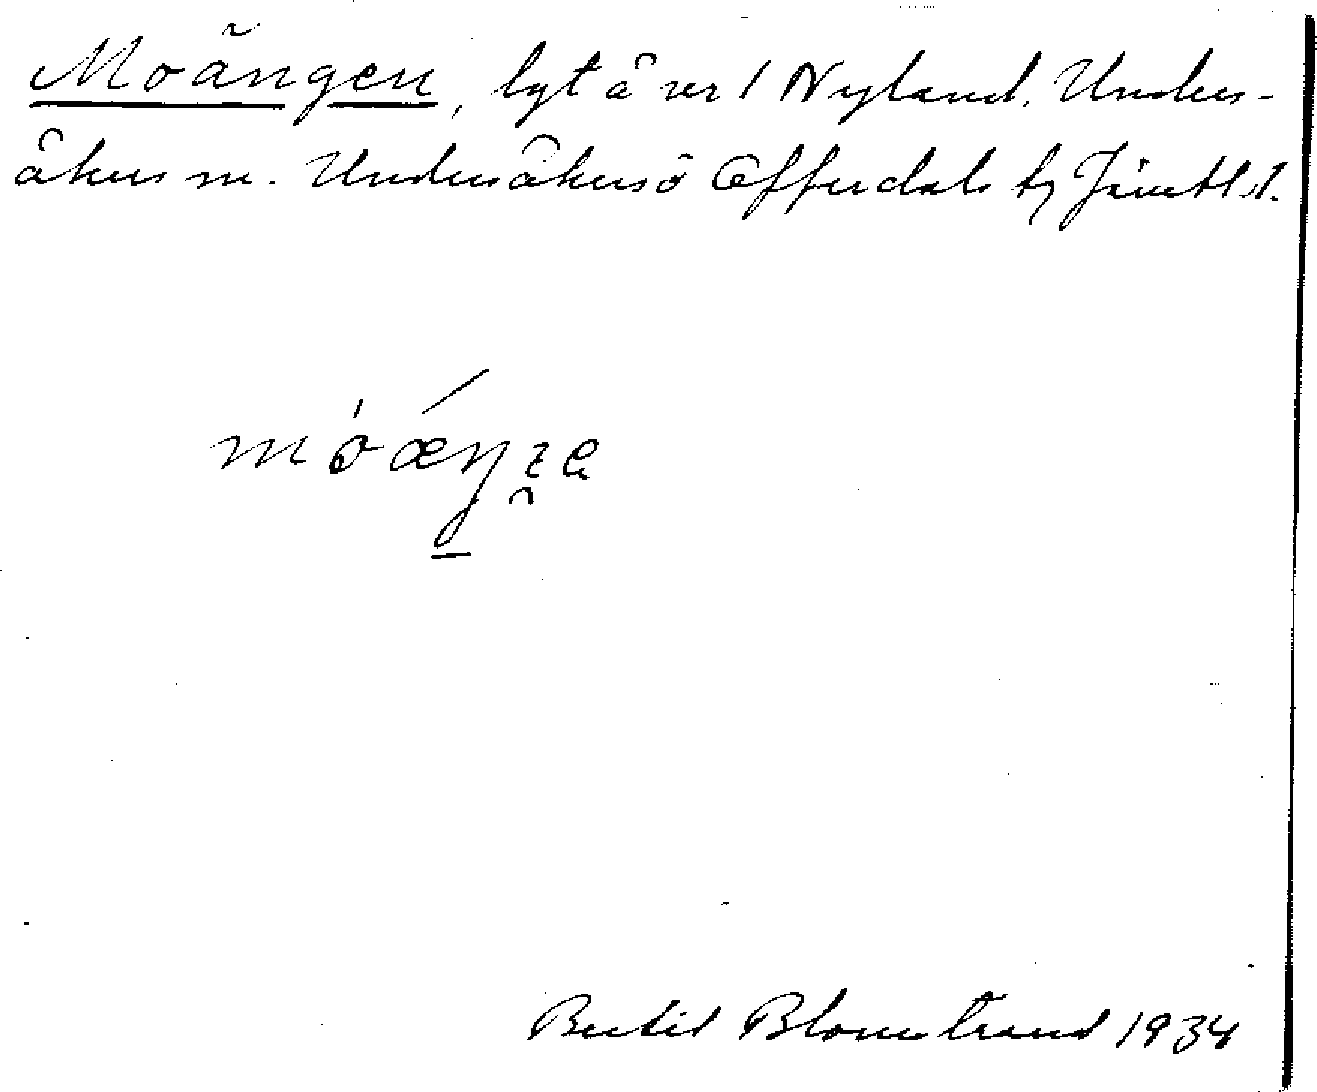 Moängen, lgt å nr 1 Nyland, Unders-
åkers sn. Undersåkers o Offerdals tg Jämtl. l.
móæŋ
Bertil Blomstrand 1934